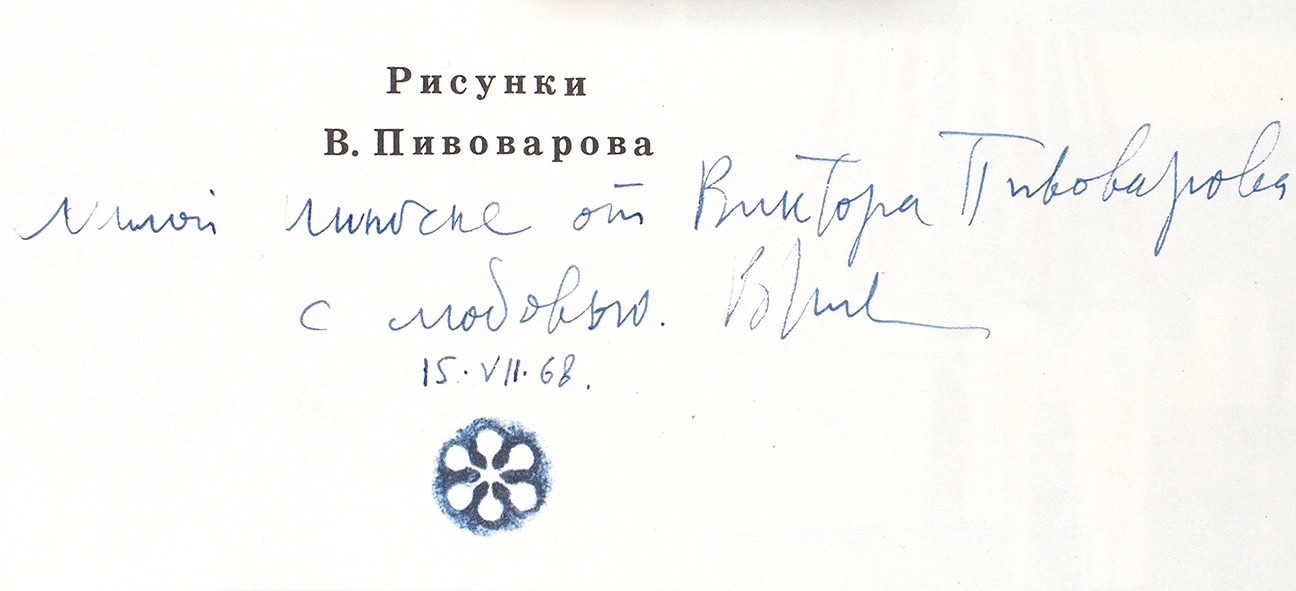 Рисунки
В. Пивоварова
Милой Линочке от Виктора Пивоварова
с любовью.
15.VII.68.